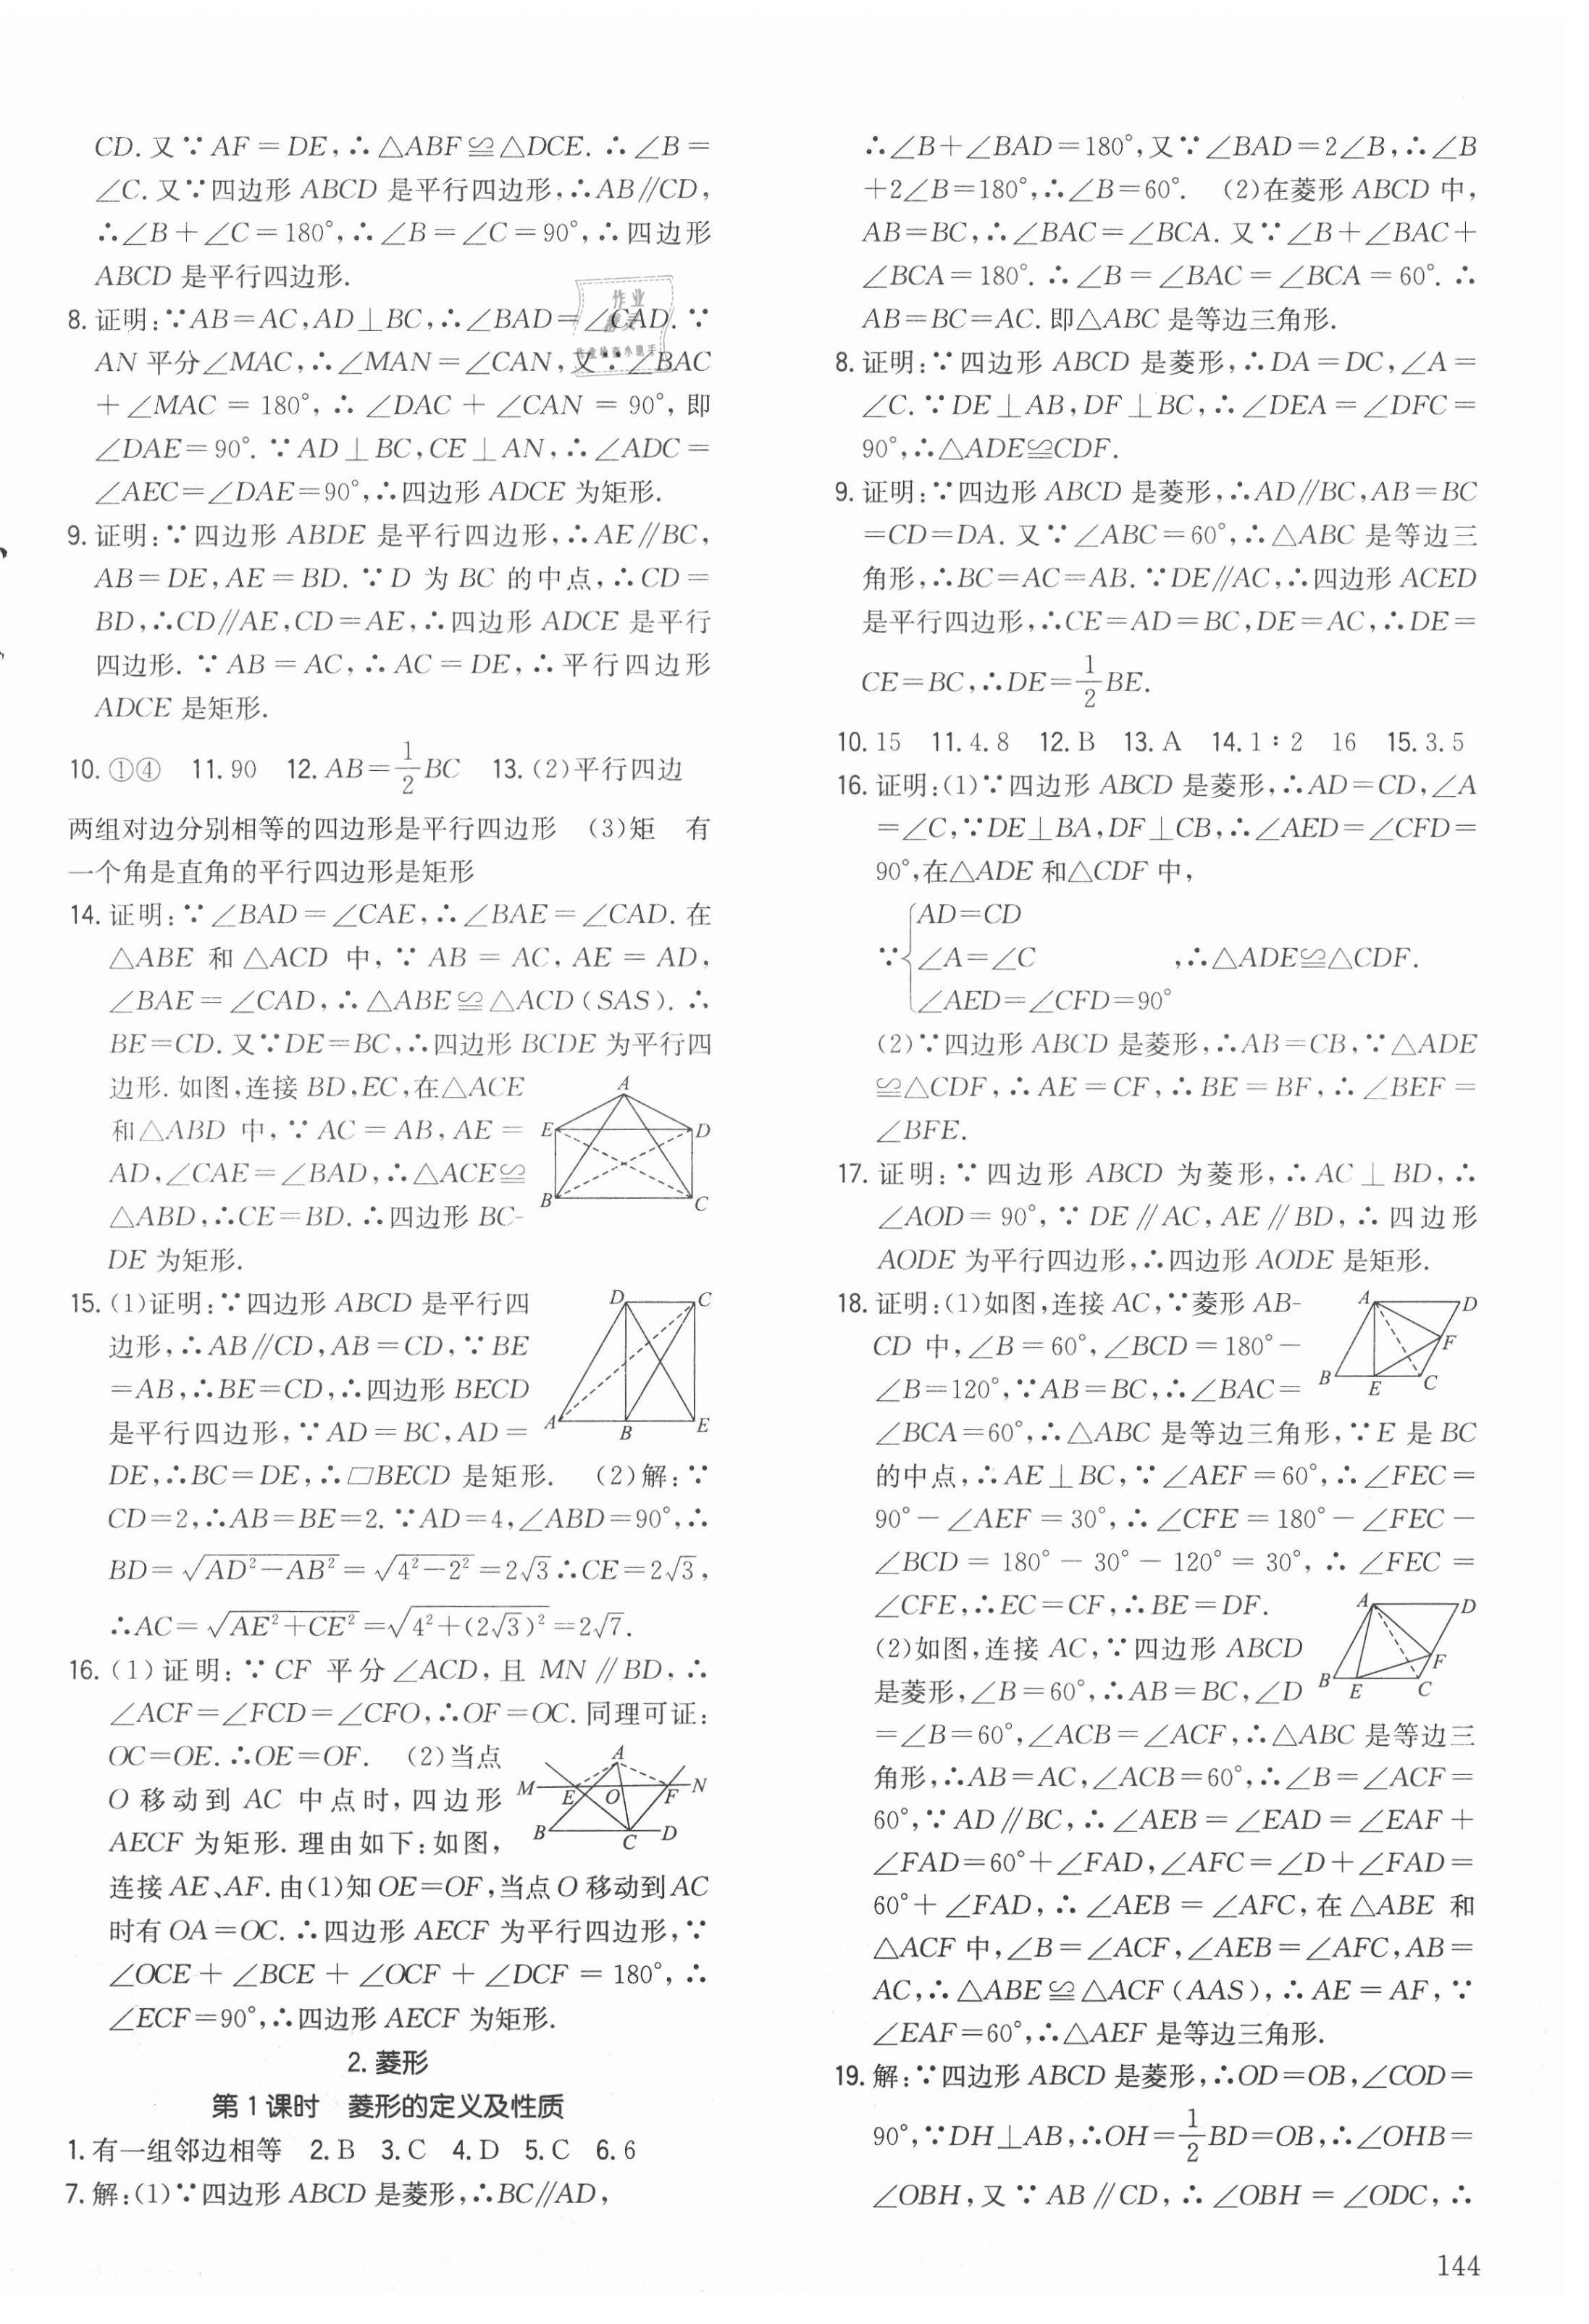 CD. 又∵AF=DE,∴△ABF≌△DCE. ∴∠B=
∠C. 又∵四边形 ABCD 是平行四边形,∴AB∥CD,
∴∠B+∠C=180°,∴∠B=∠C=90°,∴四边形
ABCD 是平行四边形.
8. 证明:∵AB=AC,AD⊥BC,∴∠BAD=∠CAD. ∵
AN 平分∠MAC,∴∠MAN=∠CAN,又∵∠BAC
+∠MAC=180°,∴∠DAC+∠CAN=90°,即
∠DAE=90°. ∵AD⊥BC,CE⊥AN,∴∠ADC=
∠AEC=∠DAE=90°,∴四边形 ADCE 为矩形.
9. 证明:∵四边形 ABDE 是平行四边形,∴AE∥BC,
AB=DE,AE=BD. ∵D 为 BC 的中点,∴CD=
BD,∴CD∥AE,CD=AE,∴四边形 ADCE 是平行
四边形. ∵AB=AC,∴AC=DE,∴平行四边形
ADCE 是矩形.
10. ①④ 11. 90 12. AB=1/2BC 13. (2)平行四边
两组对边分别相等的四边形是平行四边形 (3)矩 有
一个角是直角的平行四边形是矩形
14. 证明:∵∠BAD=∠CAE,∴∠BAE=∠CAD. 在
△ABE 和△ACD 中,∵AB=AC,AE=AD,
∠BAE=∠CAD,∴△ABE≌△ACD(SAS). ∴
BE=CD. 又∵DE=BC,∴四边形 BCDE 为平行四
边形. 如图,连接 BD,EC,在△ACE
和△ABD 中,∵AC=AB,AE=
AD,∠CAE=∠BAD,∴△ACE≌
△ABD,∴CE=BD. ∴四边形 BC-
DE 为矩形.
A
E D
B C
15. (1)证明:∵四边形 ABCD 是平行四
边形,∴AB∥CD,AB=CD,∵BE
=AB,∴BE=CD,∴四边形 BECD
是平行四边形,∵AD=BC,AD=
DE,∴BC=DE,∴▱BECD 是矩形. (2)解:∵
D C
A B E
CD=2,∴AB=BE=2. ∵AD=4,∠ABD=90°,∴
BD=√(AD²−AB²)=√(4²−2²)=2√3∴CE=2√3,
∴AC=√(AE²+CE²)=√(4²+(2√3)²)=2√7.
16. (1)证明:∵CF 平分∠ACD,且 MN∥BD,∴
∠ACF=∠FCD=∠CFO,∴OF=OC. 同理可证:
OC=OE. ∴OE=OF. (2)当点
O 移动到 AC 中点时,四边形
AECF 为矩形. 理由如下:如图,
A
M E O F N
B C D
连接 AE、AF. 由(1)知 OE=OF,当点 O 移动到 AC
时有 OA=OC. ∴四边形 AECF 为平行四边形,∵
∠OCE+∠BCE+∠OCF+∠DCF=180°,∴
∠ECF=90°,∴四边形 AECF 为矩形.
2. 菱形
第1课时 菱形的定义及性质
1. 有一组邻边相等 2. B 3. C 4. D 5. C 6. 6
7. 解:(1)∵四边形 ABCD 是菱形,∴BC∥AD,
∴∠B+∠BAD=180°,又∵∠BAD=2∠B,∴∠B
+2∠B=180°,∴∠B=60°. (2)在菱形 ABCD 中,
AB=BC,∴∠BAC=∠BCA. 又∵∠B+∠BAC+
∠BCA=180°. ∴∠B=∠BAC=∠BCA=60°. ∴
AB=BC=AC. 即△ABC 是等边三角形.
8. 证明:∵四边形 ABCD 是菱形,∴DA=DC,∠A=
∠C. ∵DE⊥AB,DF⊥BC,∴∠DEA=∠DFC=
90°,∴△ADE≌CDF.
9. 证明:∵四边形 ABCD 是菱形,∴AD∥BC,AB=BC
=CD=DA. 又∵∠ABC=60°,∴△ABC 是等边三
角形,∴BC=AC=AB. ∵DE∥AC,∴四边形 ACED
是平行四边形,∴CE=AD=BC,DE=AC,∴DE=
CE=BC,∴DE=1/2BE.
10. 15 11. 4.8 12. B 13. A 14. 1∶2 16 15. 3.5
16. 证明:(1)∵四边形 ABCD 是菱形,∴AD=CD,∠A
=∠C,∵DE⊥BA,DF⊥CB,∴∠AED=∠CFD=
90°,在△ADE 和△CDF 中,
AD=CD
∵{∠A=∠C ,∴△ADE≌△CDF.
∠AED=∠CFD=90°
(2)∵四边形 ABCD 是菱形,∴AB=CB,∵△ADE
≌△CDF,∴AE=CF,∴BE=BF,∴∠BEF=
∠BFE.
17. 证明:∵四边形 ABCD 为菱形,∴AC⊥BD,∴
∠AOD=90°,∵DE∥AC,AE∥BD,∴四边形
AODE 为平行四边形,∴四边形 AODE 是矩形.
18. 证明:(1)如图,连接 AC,∵菱形 AB-
CD 中,∠B=60°,∠BCD=180°−
∠B=120°,∵AB=BC,∴∠BAC=
A D
F
B E C
∠BCA=60°,∴△ABC 是等边三角形,∵E 是 BC
的中点,∴AE⊥BC,∵∠AEF=60°,∴∠FEC=
90°−∠AEF=30°,∴∠CFE=180°−∠FEC−
∠BCD=180°−30°−120°=30°,∴∠FEC=
∠CFE,∴EC=CF,∴BE=DF.
(2)如图,连接 AC,∵四边形 ABCD
是菱形,∠B=60°,∴AB=BC,∠D
A D
F
B E C
=∠B=60°,∠ACB=∠ACF,∴△ABC 是等边三
角形,∴AB=AC,∠ACB=60°,∴∠B=∠ACF=
60°,∵AD∥BC,∴∠AEB=∠EAD=∠EAF+
∠FAD=60°+∠FAD,∠AFC=∠D+∠FAD=
60°+∠FAD,∴∠AEB=∠AFC,在△ABE 和
△ACF 中,∠B=∠ACF,∠AEB=∠AFC,AB=
AC,∴△ABE≌△ACF(AAS),∴AE=AF,∵
∠EAF=60°,∴△AEF 是等边三角形.
19. 解:∵四边形 ABCD 是菱形,∴OD=OB,∠COD=
90°,∵DH⊥AB,∴OH=1/2BD=OB,∴∠OHB=
∠OBH,又∵AB∥CD,∴∠OBH=∠ODC,∴
144